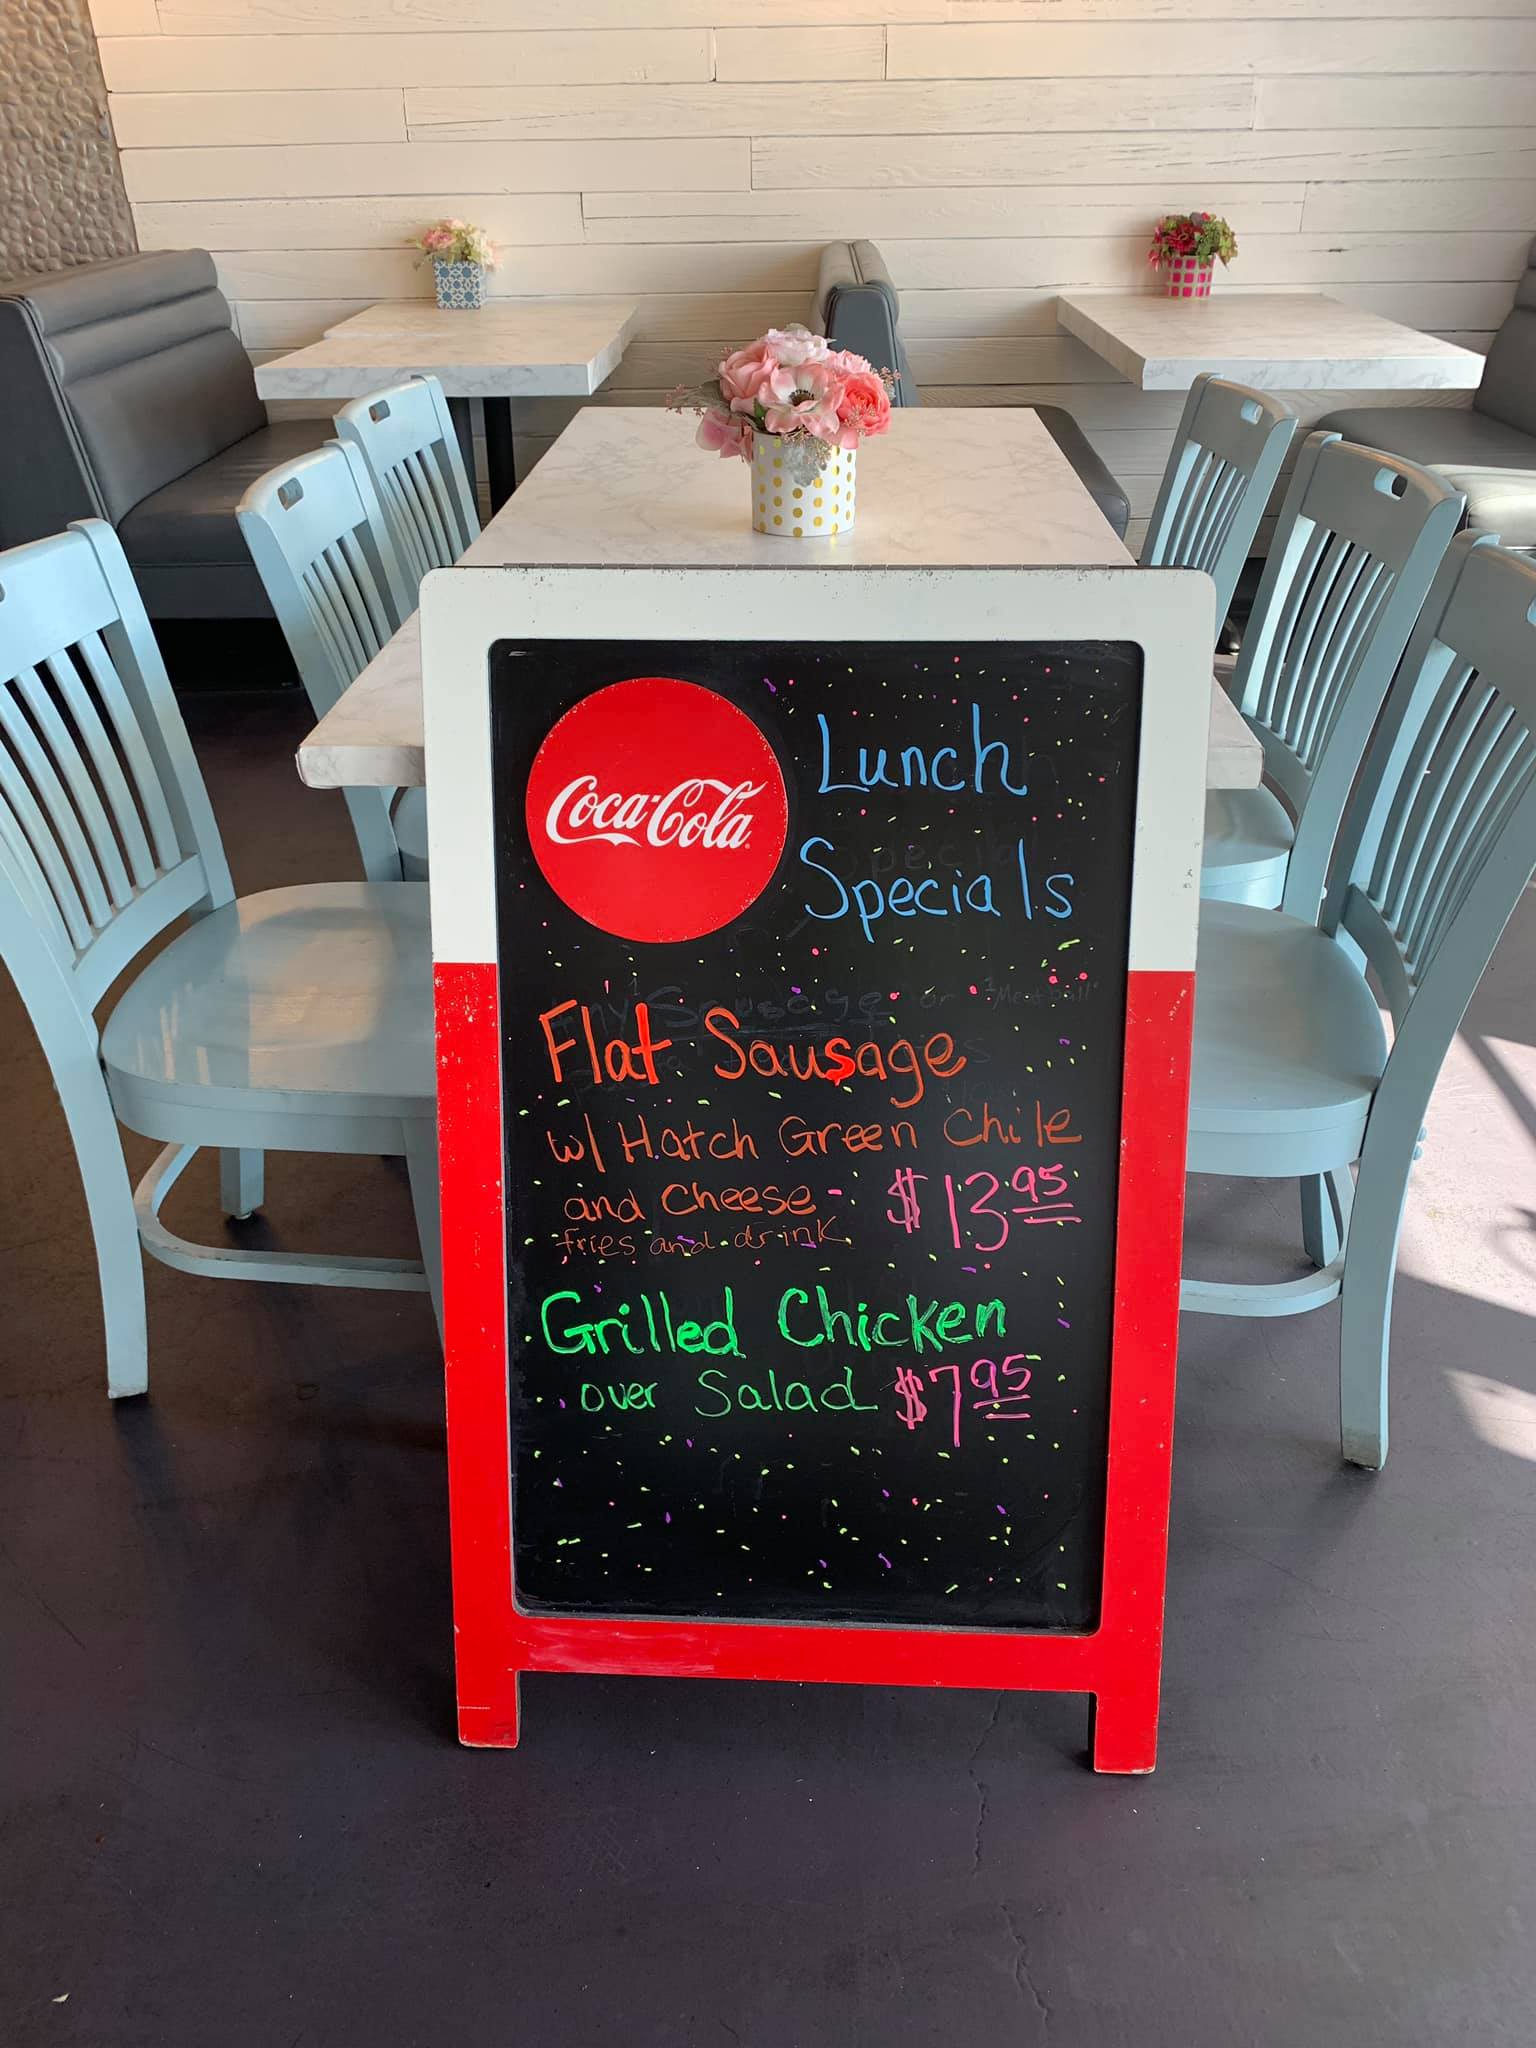 Coca-Cola
Lunch
Specials
Flat Sausage
w/ Hatch Green Chile
and Cheese - $13.95
fries and drink
Grilled Chicken
over Salad $7.95